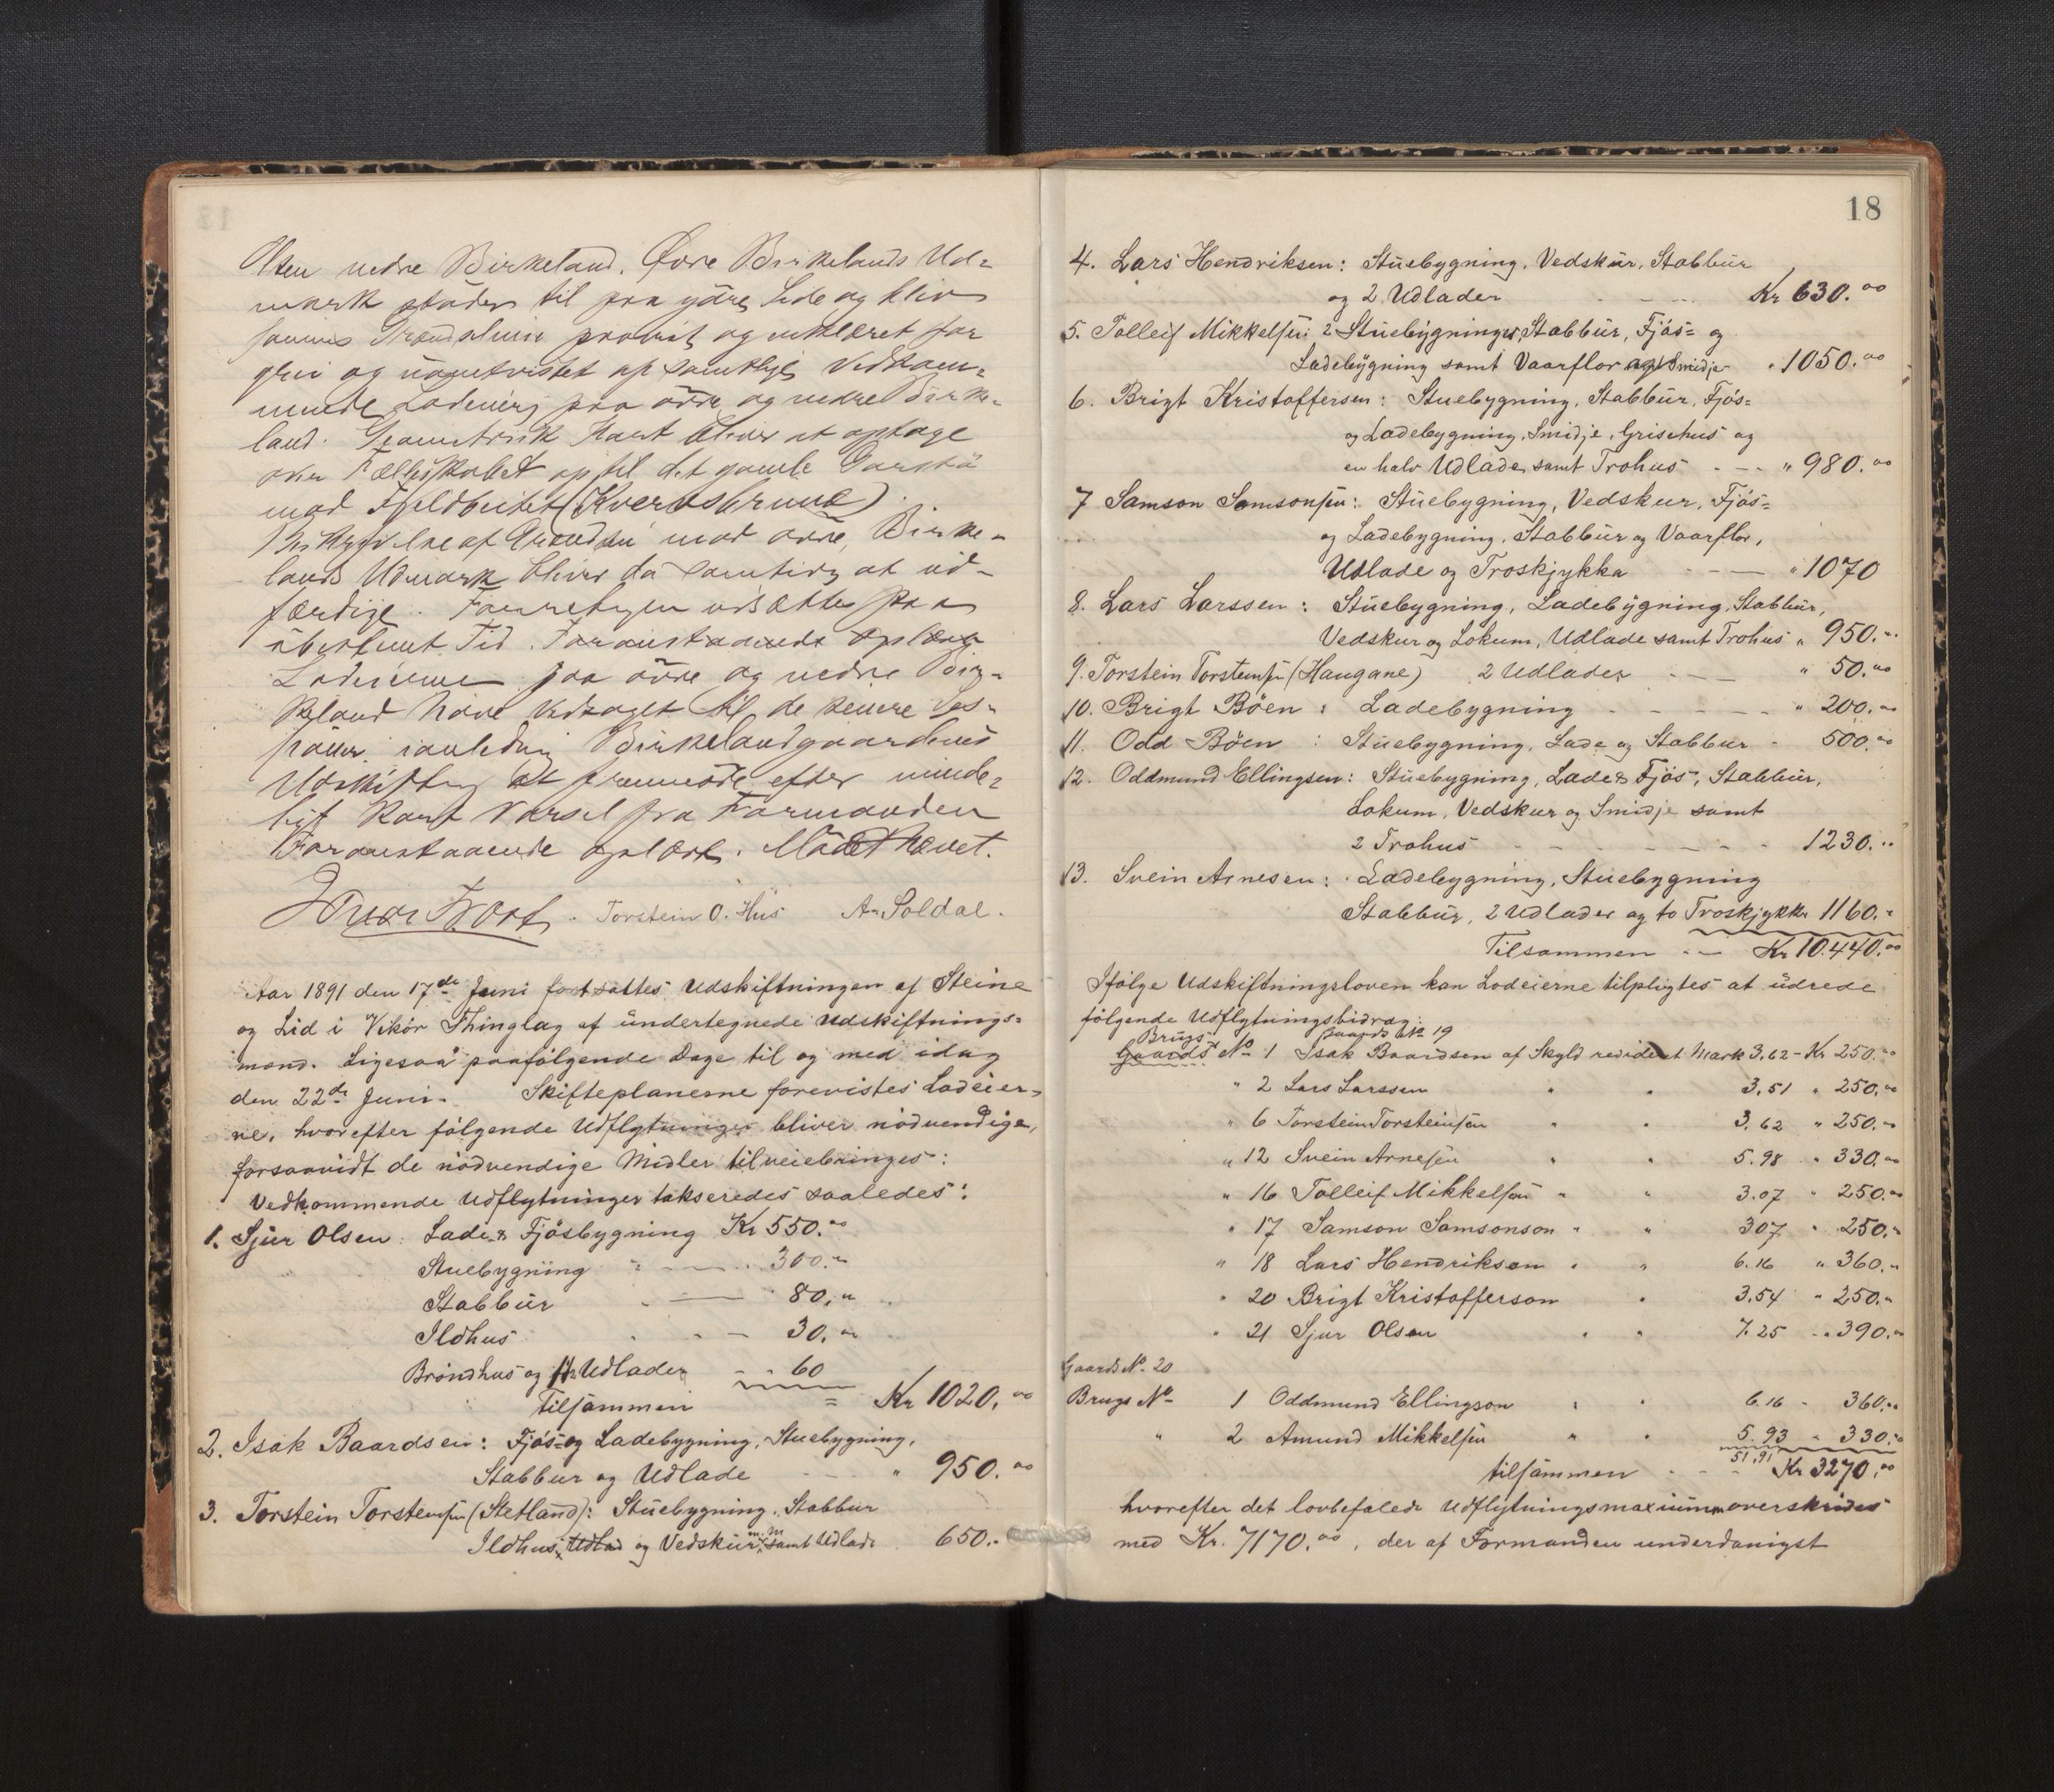 Olsen nedre Birkeland. Øvre Birkelands Ud=
mark støder til paa ydre Side og bliv
sammes Grændselinie prøvet og erklæret for
grei og uomtvistet af samtlige Vedkom=
mende Lodeiere paa øvre og nedre Birke=
land. Geometrisk Kart bliver at optage
over Fællesskabet op til det gamle Gjerde
mod Fjeldbeitet (Kvernsbrune).
Beskrivelse af Grændsen mod øvre Birke=
lands Udmark bliver da samtidig at ud=
færdige. Forretningen udsættes paa
übestemt Tid. Foranstaaende oplæst
Lodeierne paa øvre og nedre Bir=
keland have vedtaget til de senere Ses=
sioner i anledning Birkelandgaardenes
Udskiftning at fremmøde efter minde=
ligt kort Varsel fra Formanden
Foranstaaende oplæst. Mødet hævet.
Torstein O. Hus A. Soldal.
Aar 1891 den 17de Juni fortsattes Udskiftningen af Steine
og Lid i Vikör Thinglag af undertegnede Udskiftnings=
mænd. Ligesaa paafölgende Dage til og med idag
den 22de Juni. Skifteplanerne forevistes Lodeier=
ne, hvorefter fölgende Udflytninger bliver nödvendige,
forsaavidt de nödvendige Midler tilveiebringes:
Vedkommende Udflytninger takseredes saaledes:
1. Sjur Olsen: Lade & Fjösbygning Kr 550.00
Stuebygning - 300.00
Stabbür - 80.00
Ildhus - 30.00
Bröndhus og Udlader - 60
Tilsammen = Kr 1020.00
2. Isak Baardsen: Fjös= og Ladebygning, Stuebygning,
Stabbur og Udlade " 950.00
3. Torstein Torstensen (Stetland): Stuebygning, Stabbur
Ildhus, Udlad og Vedskür m.m samt Udlade 650.-
18
4. Lars Hendriksen: Stuebygning, Vedskür, Stabbür
og 2 Udlader - - - Kr 630.00
5. Tolleif Mikkelsen: 2 Stuebygninger, Stabbür, Fjös= og
Ladebygning samt Vaarflor og Smidje " 1050.00
6. Brigt Kristoffersen: Stuebygning, Stabbür, Fjös=
og Ladebygning, Smidje, Grisehus og
en halv Udlade, samt Trohus - - " 980.00
7 Samson Samsonsen: Stuebygning, Vedskur, Fjös=
og Ladebygning, Stabbür og Vaarflor,
Udlade og Troskjykka - - - " 1070
8. Lars Larssen: Stuebygning, Ladebygning, Stabbür,
Vedskur og Lokum, Udlade samt Trohus " 950.-
9. Torstein Torstensen (Haugane) 2 Udlader - - " 50.00
10. Brigt Böen: Ladebygning - - - - " 200.00
11. Odd Böen: Stuebygning, Lade og Stabbur - 500.00
12. Oddmund Ellingsen: Stuebygning, Lade & Fjös, Stabbür,
Lokum, Vedskur og Smidje samt
2 Trohus - - - - - - 1230.00
13. Svein Arnesen: Ladebygning, Stuebygning
Stabbür, 2 Udlader og to Troskjykker 1160.-
Tilsammen - - Kr 10.440.00
Ifölge Udskiftningsloven kan Lodeierne tilpligtes at üdrede
fölgende Udflytningsbidrag:
Brugs Gaards No 19
Gaards No 1 Isak Baardsen af Skyld revideret Mark 3,62 - Kr 250.00
" 2 Lars Larssen " " 3,51 " 250.00
" 6 Torstein Torsteinsen " " 3.62 " 250.00
" 12 Svein Arnesen " " 5.98 " 330.00
" 16 Tolleif Mikkelsen " " 3.07 " 250.00
" 17 Samson Samsonson " " 307 " 250.-
" 18 Lars Hendriksen " " 6.16 " 360.-
" 20 Brigt Kristofferson " 3.54 " 250.-
" 21 Sjur Olsen " " 7.25 " 390.00
Gaards No. 20
Brugs No 1 Oddmund Ellingson " " 6.16 - 360.00
" 2 Amund Mikkelsen " " 5.93 - 330.00
51,91
tilsammen - - Kr 3270.00
hvorefter det lovbefalede Udflytningsmaximum overskrides
med Kr. 7170.00, der af Formanden underdanigst